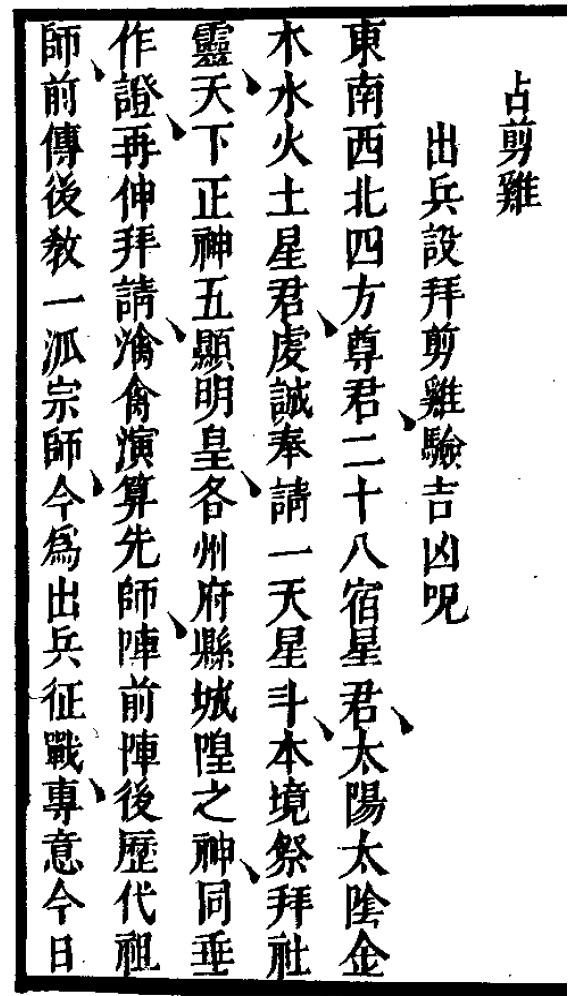 占剪雞
出兵設拜剪雞驗吉凶咒
東南西北四方尊君二十八宿星君太陽太陰金
木水火土星君虔誠奉請一天星斗本境祭拜社
靈天下正神五顯明皇各州府縣城隍之神同垂
作證再伸拜請瀹禽演算先師陣前陣後歷代祖
師前傳後教一派宗師今爲出兵征戰專意今日